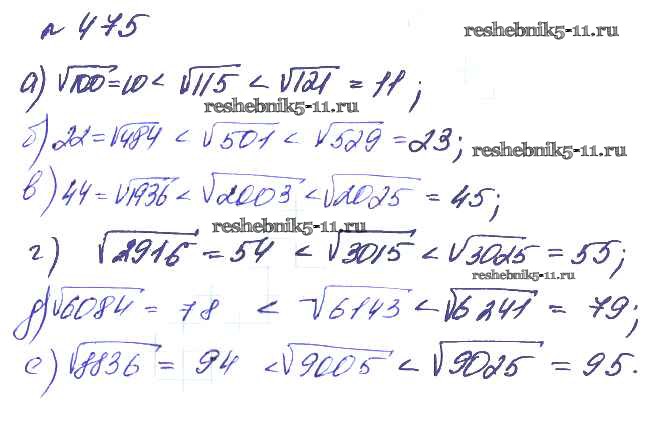 № 475
reshebnik5-11.ru
а) √100 = 10 < √115 < √121 = 11;
reshebnik5-11.ru
б) 22 = √484 < √501 < √529 = 23;
reshebnik5-11.ru
в) 44 = √1936 < √2003 < √2025 = 45;
reshebnik5-11.ru
г) √2916 = 54 < √3015 < √3025 = 55;
reshebnik5-11.ru
д) √6084 = 78 < √6143 < √6241 = 79;
е) √8836 = 94 < √9005 < √9025 = 95.